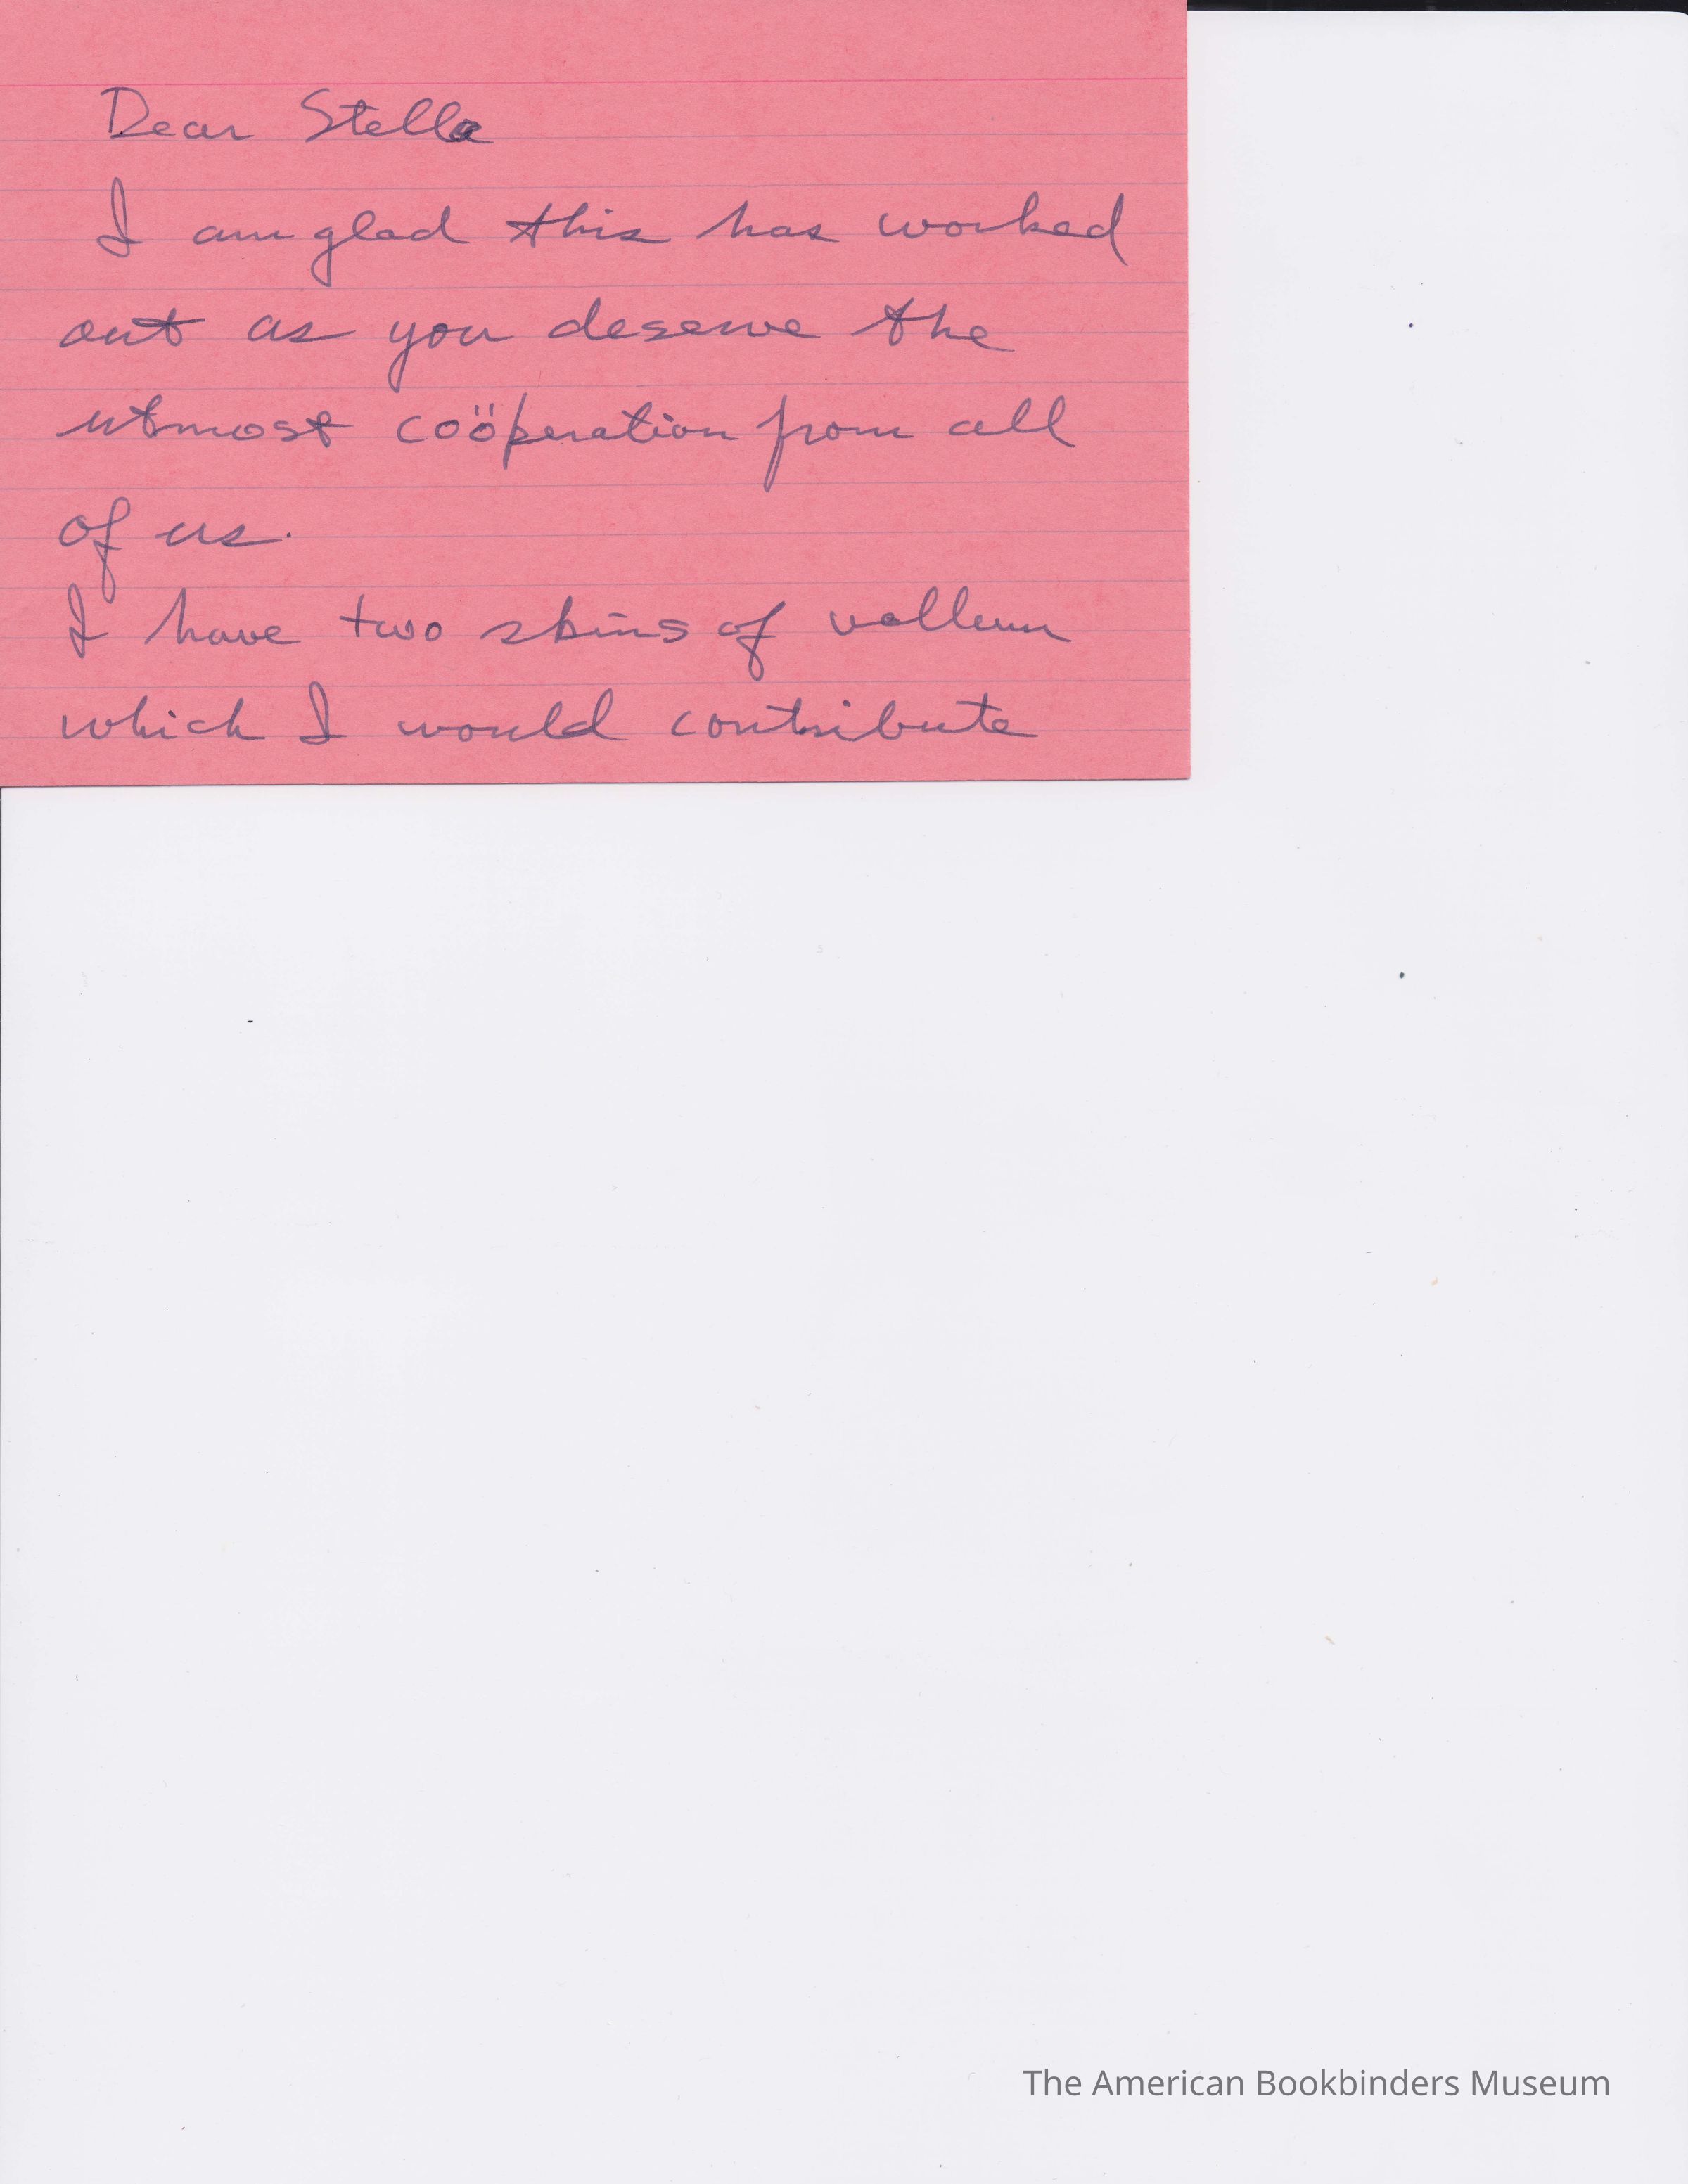 Dear Stella
I am glad this has worked
out as you deserve the
utmost coöperation from all
of us.
I have two skins of vellum
which I would contribute
The American Bookbinders Museum